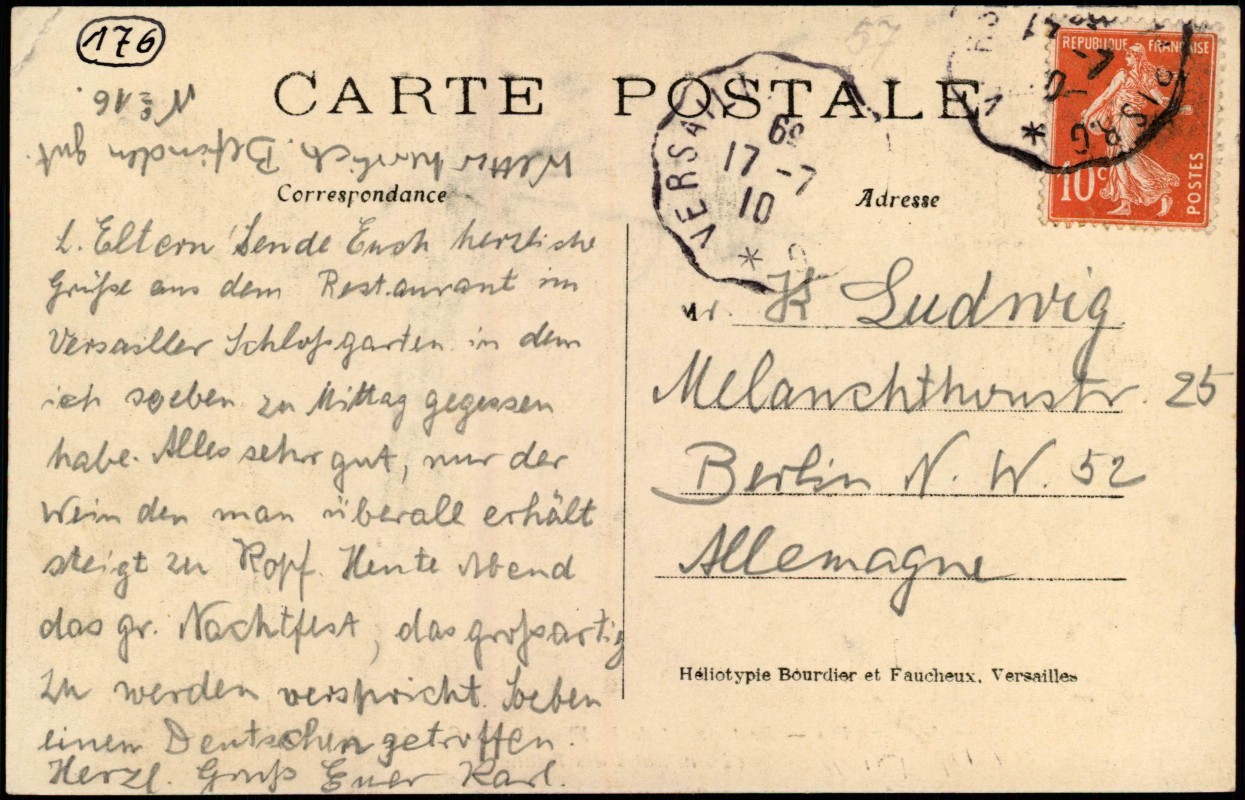 176
CARTE POSTALE
Correspondance
Adresse
REPUBLIQUE FRANÇAISE
10c
POSTES
VERSAI
17 -7
10
No 16.
Wetter herrlich. Befinden gut.
L. Eltern! Sende Euch herzliche
Grüße aus dem Restaurant im
Versailler Schloßgarten in dem
ich soeben zu Mittag gegessen
habe. Alles sehr gut, nur der
Wein den man überall erhält
steigt zu Kopf. Heute Abend
das gr. Nachtfest, das großartig
zu werden verspricht. Soeben
einen Deutschen getroffen.
Herzl. Gruß Euer Karl.
K Ludwig
Melanchthonstr. 25
Berlin N. W. 52
Allemagne
Héliotypie Bourdier et Faucheux, Versailles